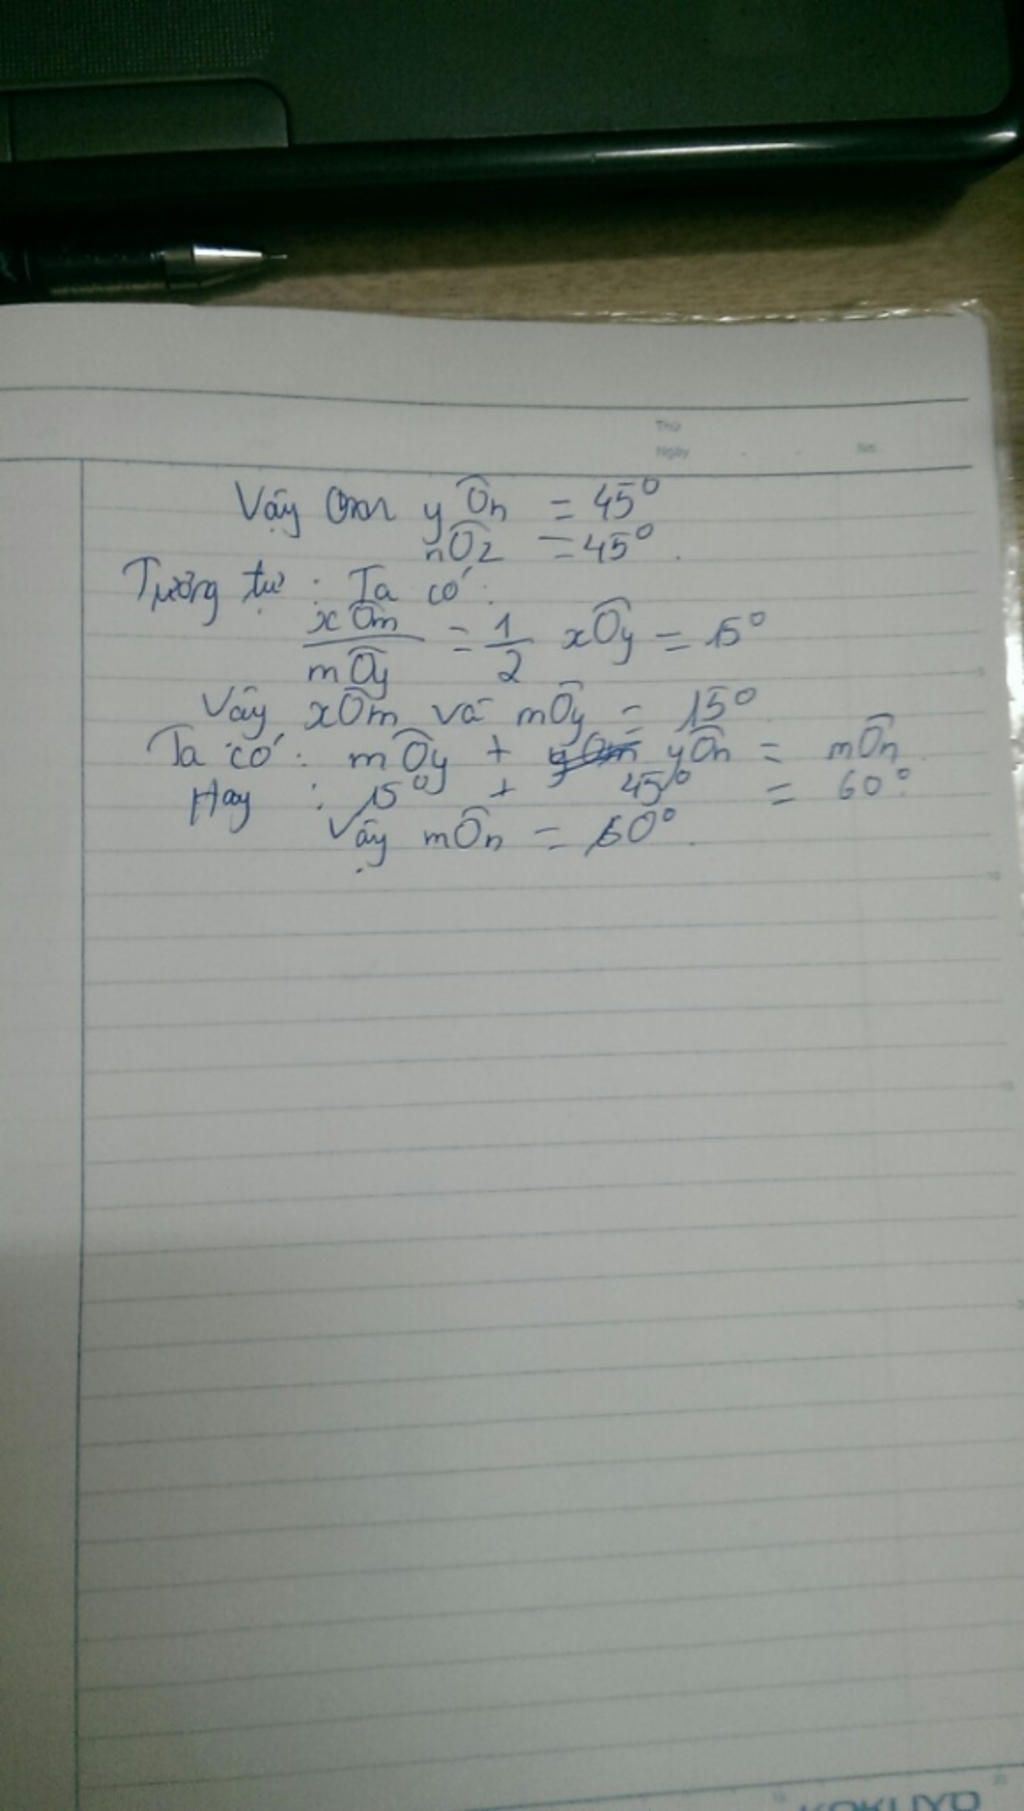 Thứ
Ngày . . No.
Vậy yÔn = 45°
nÔz = 45°.
Tương tự : Ta có :
xÔm / mÔy = 1/2 xÔy = 15°
Vậy xÔm và mÔy = 15°
Ta có : mÔy + yÔn = mÔn
Hay : 15° + 45° = 60°.
Vậy mÔn = 60°.
KOKUYO